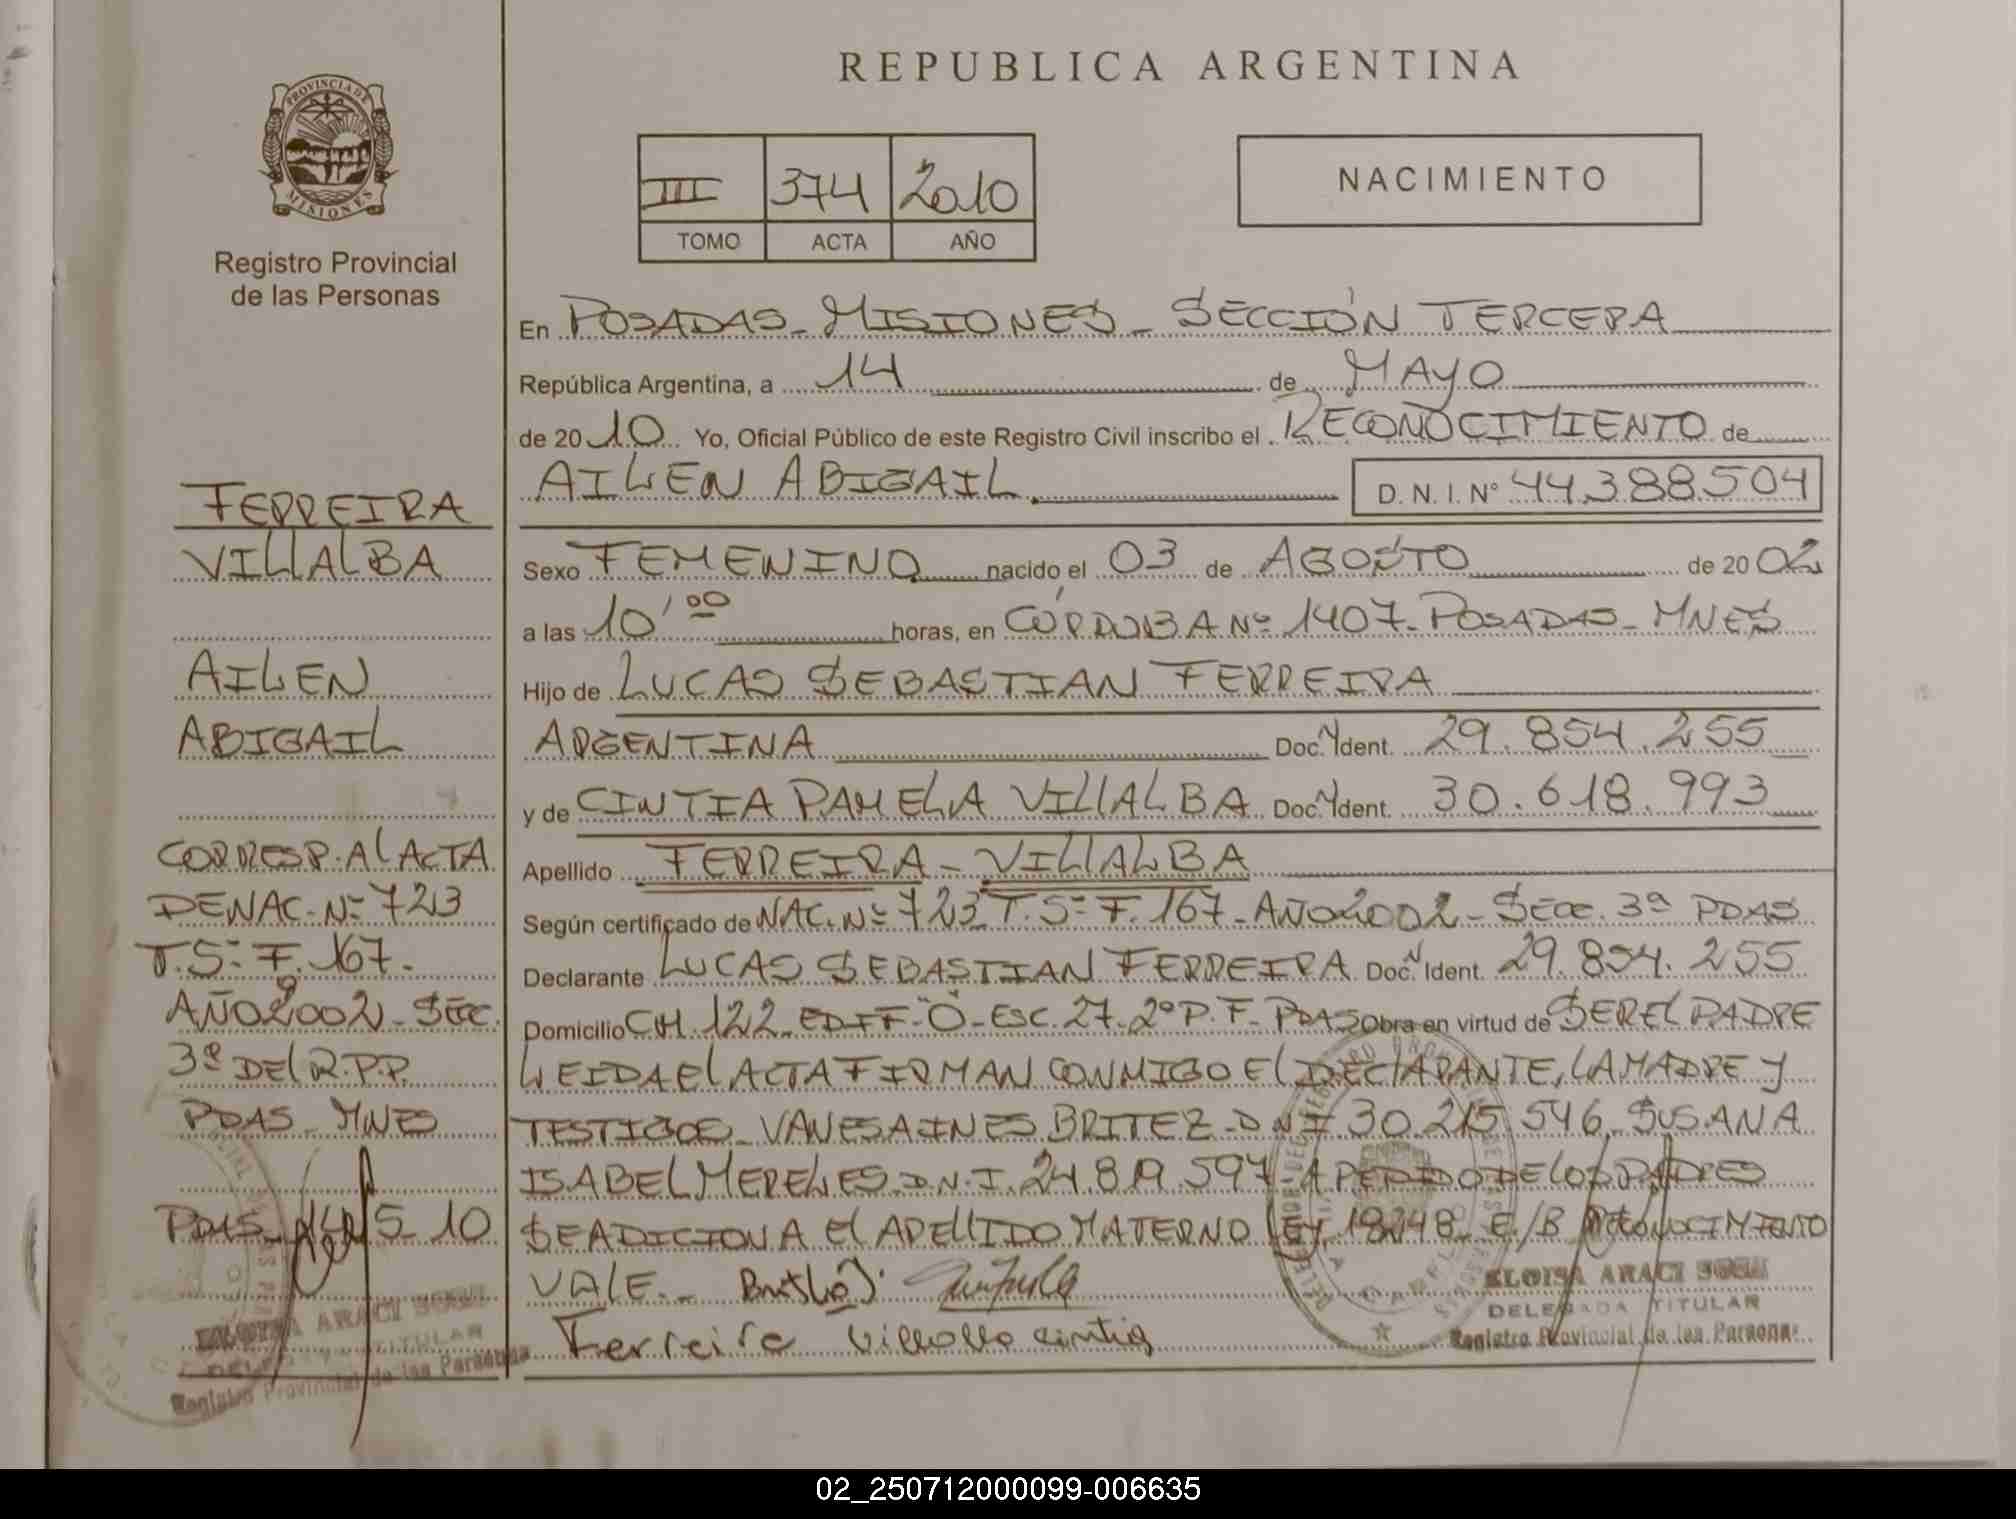 REPUBLICA ARGENTINA
PROVINCIA DE
MISIONES
Registro Provincial
de las Personas
III 374 2010
TOMO ACTA AÑO
NACIMIENTO
FERREIRA
VILLALBA
AILEN
ABIGAIL
CORRESP. AL ACTA
DE NAC. Nº 723
T. 5º F. 167.
AÑO 2002 - SEC.
3ª DEL R.P.P.
PDAS - MNES
PDAS 14 5 10
ELOISA ARACI
TITULAR
Registro Provincial de las Personas
En POSADAS - MISIONES - SECCIÓN TERCERA
República Argentina, a 14 de MAYO
de 2010 Yo, Oficial Público de este Registro Civil inscribo el RECONOCIMIENTO de
AILEN ABIGAIL. D. N. I. Nº 44.388.504
Sexo FEMENINO nacido el 03 de AGOSTO de 2002
a las 10,00 horas, en CÓRDOBA Nº 1407 - POSADAS - MNES
Hijo de LUCAS SEBASTIAN FERREIRA
ARGENTINA Doc. Ident. 29.854.255
y de CINTIA PAMELA VILLALBA Doc. Ident. 30.618.993
Apellido FERREIRA - VILLALBA
Según certificado de NAC. Nº 723 T. 5º F. 167 - AÑO 2002 - SECC. 3ª PDAS
Declarante LUCAS SEBASTIAN FERREIRA Doc. Ident. 29.854.255
Domicilio CH. 122 - EDIF "O" - ESC. 27 - 2º P. F - PDAS Obra en virtud de SER EL PADRE
LEIDA EL ACTA FIRMAN CONMIGO EL DECLARANTE, LA MADRE Y
TESTIGOS - VANESA INES BRITEZ - DNI 30.215.546, SUSANA
ISABEL MERELES D.N.I. 24.819.597 - A PEDIDO DE LOS PADRES
SE ADICIONA EL APELLIDO MATERNO LEY 18248 - E/B RECONOCIMIENTO
VALE.-
Ferreira Villalba Cintia
ELOISA ARACI
DELEGADA TITULAR
Registro Provincial de las Personas
02_250712000099-006635